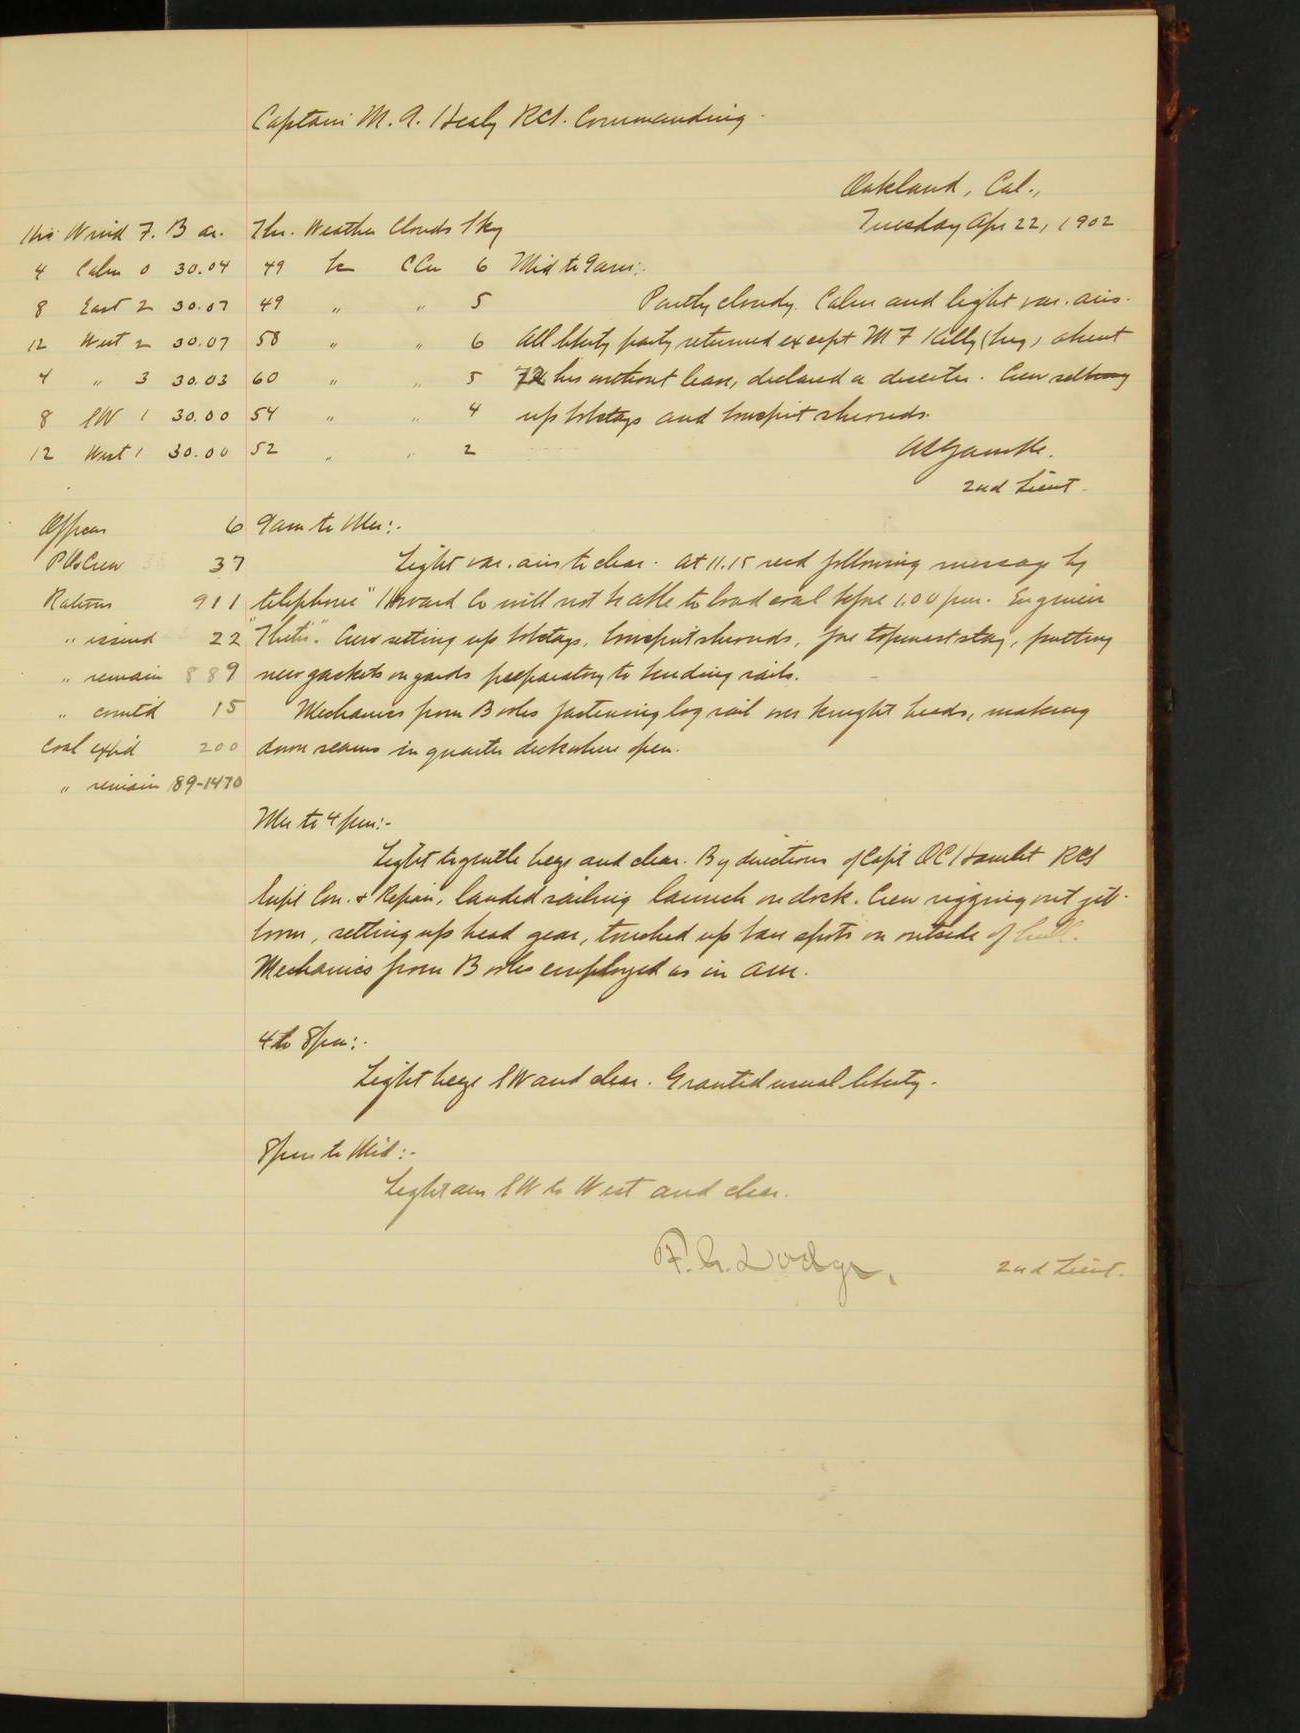 Captain M. A. Healy RCS. Commanding.
Oakland, Cal.,
Tuesday Apr 22, 1902
Hrs Wind F. Bar. Thr. Weather Clouds Sky
4 Calm 0 30.04 49 bc CCu 6 Mid to 9am:-
8 East 2 30.07 49 " " 5 Partly cloudy. Calm and light var. airs.
12 West 2 30.07 58 " " 6 All liberty party returned except M F Kelly (Sea) absent
4 " 3 30.03 60 " " 5 72 hrs without leave, declared a deserter. Crew setting
8 SW 1 30.00 54 " " 4 up bobstays and bowsprit shrouds.
12 West 1 30.00 52 " " 2
A L Gamble.
2nd Lieut.
Officers 6 9am to Mer:-
POs Crew 37 Light var. airs to clear. At 11.15 recd following message by
Rations 911 telephone "Howard Co will not be able to load coal before 1.00 pm. Engineer
" issued 22 "Thetis". Crew setting up bobstays, bowsprit shrouds, fore topmast stay, putting
" remain 889 new gaskets on yards preparatory to bending sails.
" comt'd 15 Mechanics from Booles fastening log rail over knight heads, making
Coal exp'd 200 down seams in quarter deck where open.
" remain 89-1470
Mer to 4 pm:-
Light to gentle breeze and clear. By directions of Capt O C Hamlet RCS
Supt Con. & Repair, landed sailing launch on dock. Crew rigging out jib-
boom, setting up head gear, touched up bare spots on outside of hull.
Mechanics from Booles employed as in am.
4 to 8 pm:-
Light breeze SW and clear. Granted usual liberty.
8 pm to Mid:-
Light airs SW to West and clear.
F. G. Dodge,
2nd Lieut.